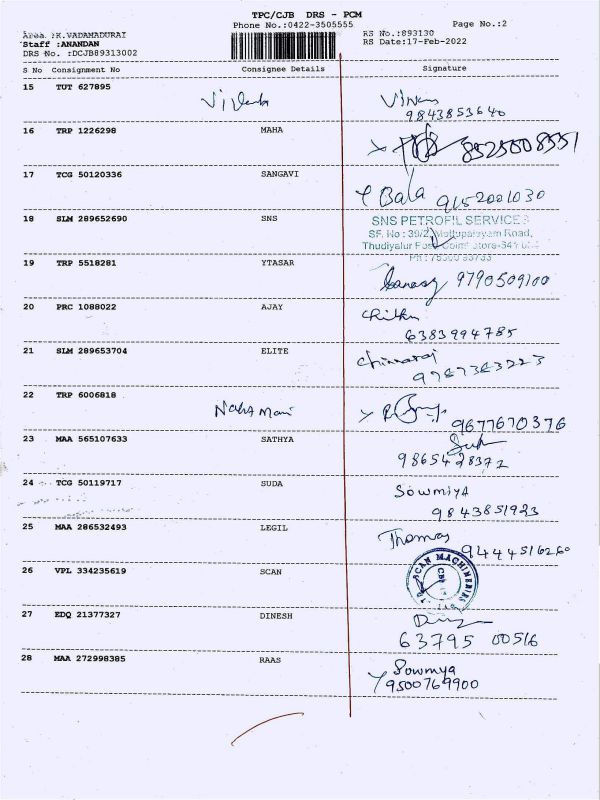 TPC/CJB DRS - PCM
Phone No.:0422-3505555 Page No.:2
Area :K.VADAMADURAI RS No.:893130
Staff :ANANDAN RS Date:17-Feb-2022
DRS No. :DCJB89313002
S No Consignment No Consignee Details Signature
15 TUT 627895
9843853640
16 TRP 1226298 MAHA
8525008551
17 TCG 50120336 SANGAVI
Bala 9152001030
18 SLM 289652690 SNS
SNS PETROFIL SERVICES
SF. No : 39/2, Mettupalayam Road,
Thudiyalur Post
19 TRP 5518281 YTASAR
9790509100
20 PRC 1088022 AJAY
6383994785
21 SLM 289653704 ELITE
Chinnaraj
9787383223
22 TRP 6006818 Nahamani
9677670376
23 MAA 565107633 SATHYA
9865428372
24 TCG 50119717 SUDA
Sowmiya
9843851923
25 MAA 286532493 LEGIL
Thomas
9444516260
26 VPL 334235619 SCAN
SCAN MACHINERIES
27 EDQ 21377327 DINESH
63795 00516
28 MAA 272998385 RAAS
Sowmya
9500769900